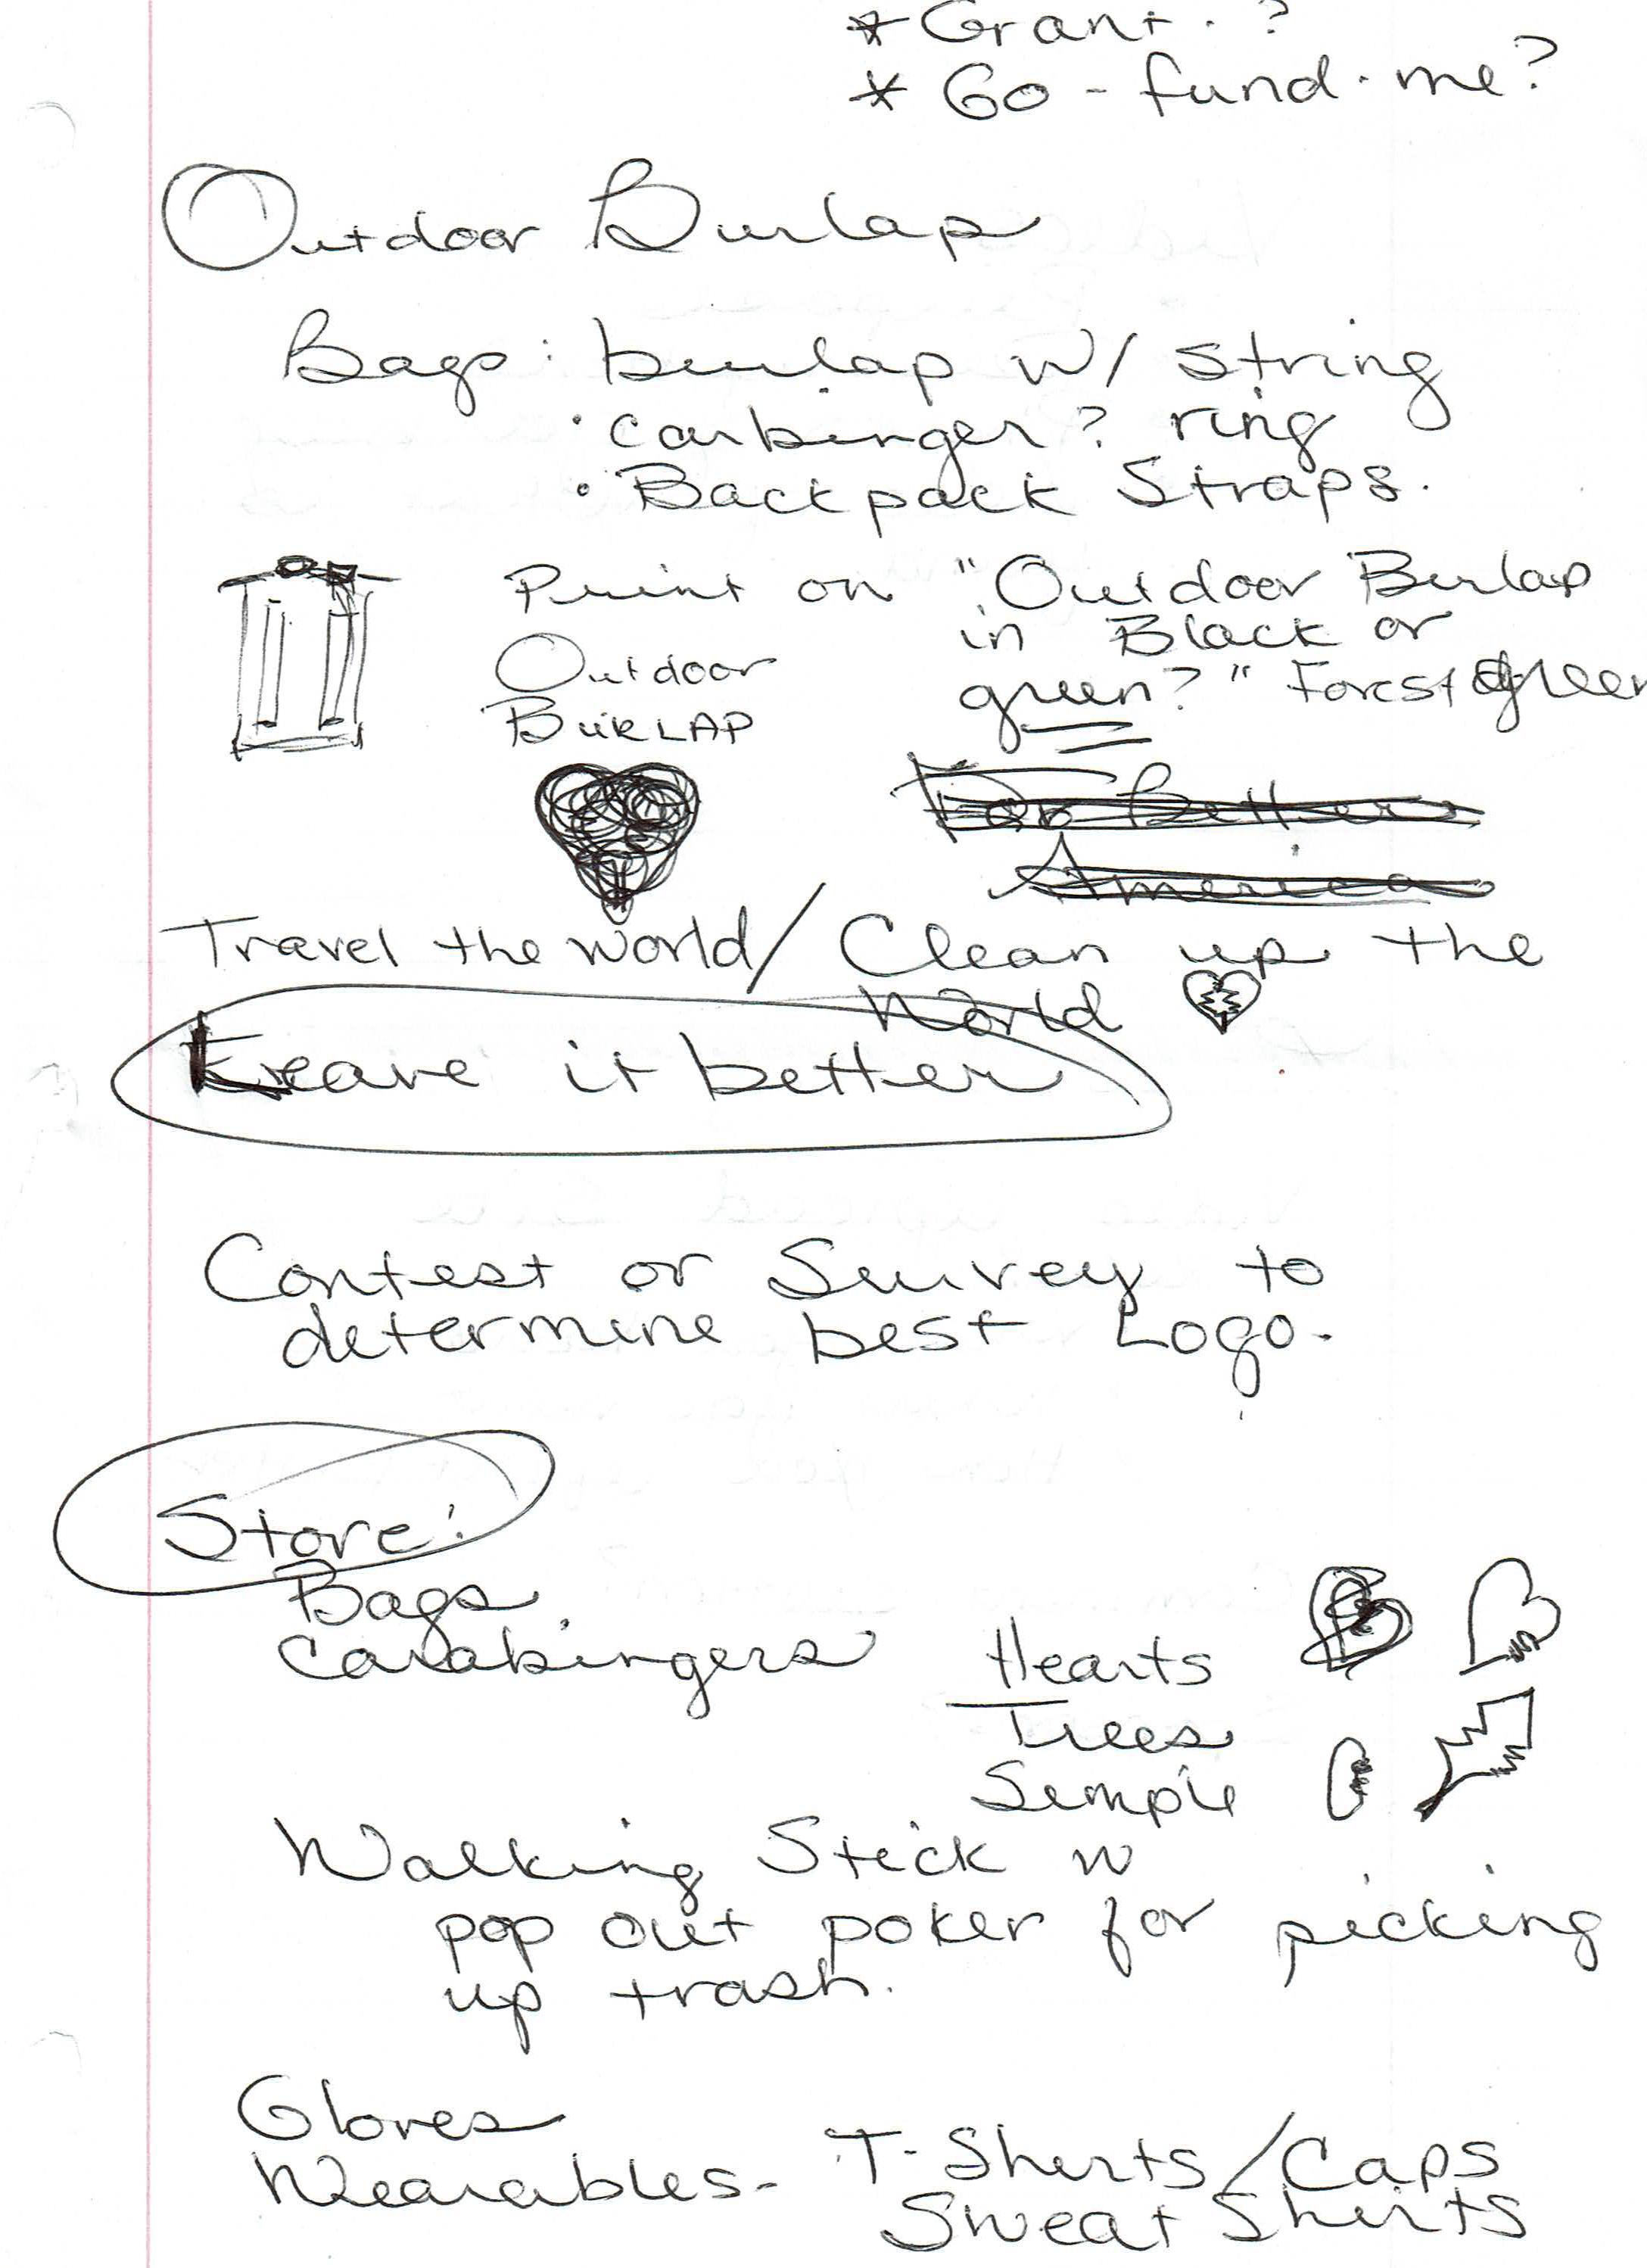 * Grant. ?
* Go-fund.me?
Outdoor Burlap
Bags: burlap w/ string
· carbinger? ring
· Backpack Straps.
Print on "Outdoor Burlap
in Black or
green?" Forest green
Outdoor
BURLAP
For Better
America
Travel the world/ Clean up the
World
Leave it better
Contest or Survey to
determine best Logo.
Store:
Bags
Carabingers
Hearts
Trees
Simple
Walking Stick w
pop out poker for picking
up trash.
Gloves
Wearables- T-Shirts/Caps
Sweat Shirts